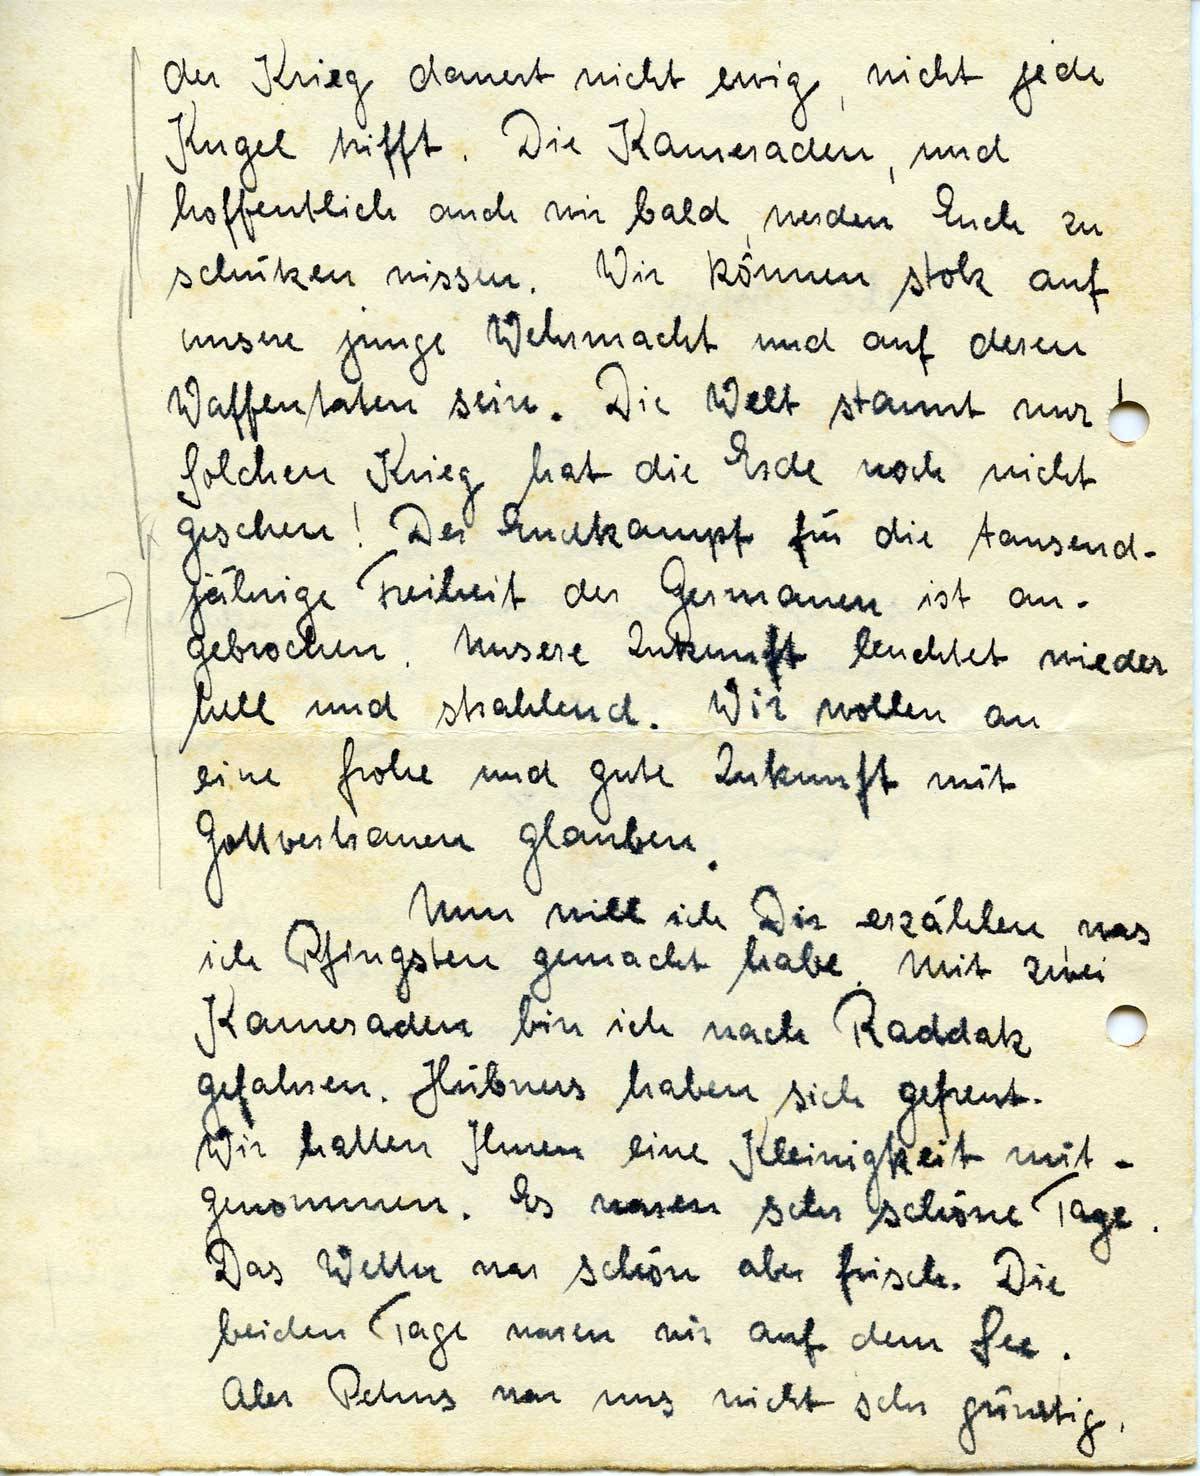 der Krieg dauert nicht ewig, nicht jede
Kugel trifft. Die Kameraden, und
hoffentlich auch wir bald, werden Euch zu
schützen wissen. Wir können stolz auf
unsere junge Wehrmacht und auf deren
Waffentaten sein. Die Welt staunt nur!
Solchen Krieg hat die Erde noch nicht
gesehen! Der Endkampf für die tausend-
jährige Freiheit der Germanen ist an-
gebrochen. Unsere Zukunft leuchtet wieder
hell und strahlend. Wir wollen an
eine frohe und gute Zukunft mit
Gottvertrauen glauben.
Nun will ich Dir erzählen, was
ich Pfingsten gemacht habe. Mit zwei
Kameraden bin ich nach Raddatz
gefahren. Hübners haben sich gefreut.
Wir hatten Ihnen eine Kleinigkeit mit-
genommen. Es waren sehr schöne Tage.
Das Wetter war schön aber frisch. Die
beiden Tage waren wir auf dem See.
Aber Petrus war uns nicht sehr günstig,